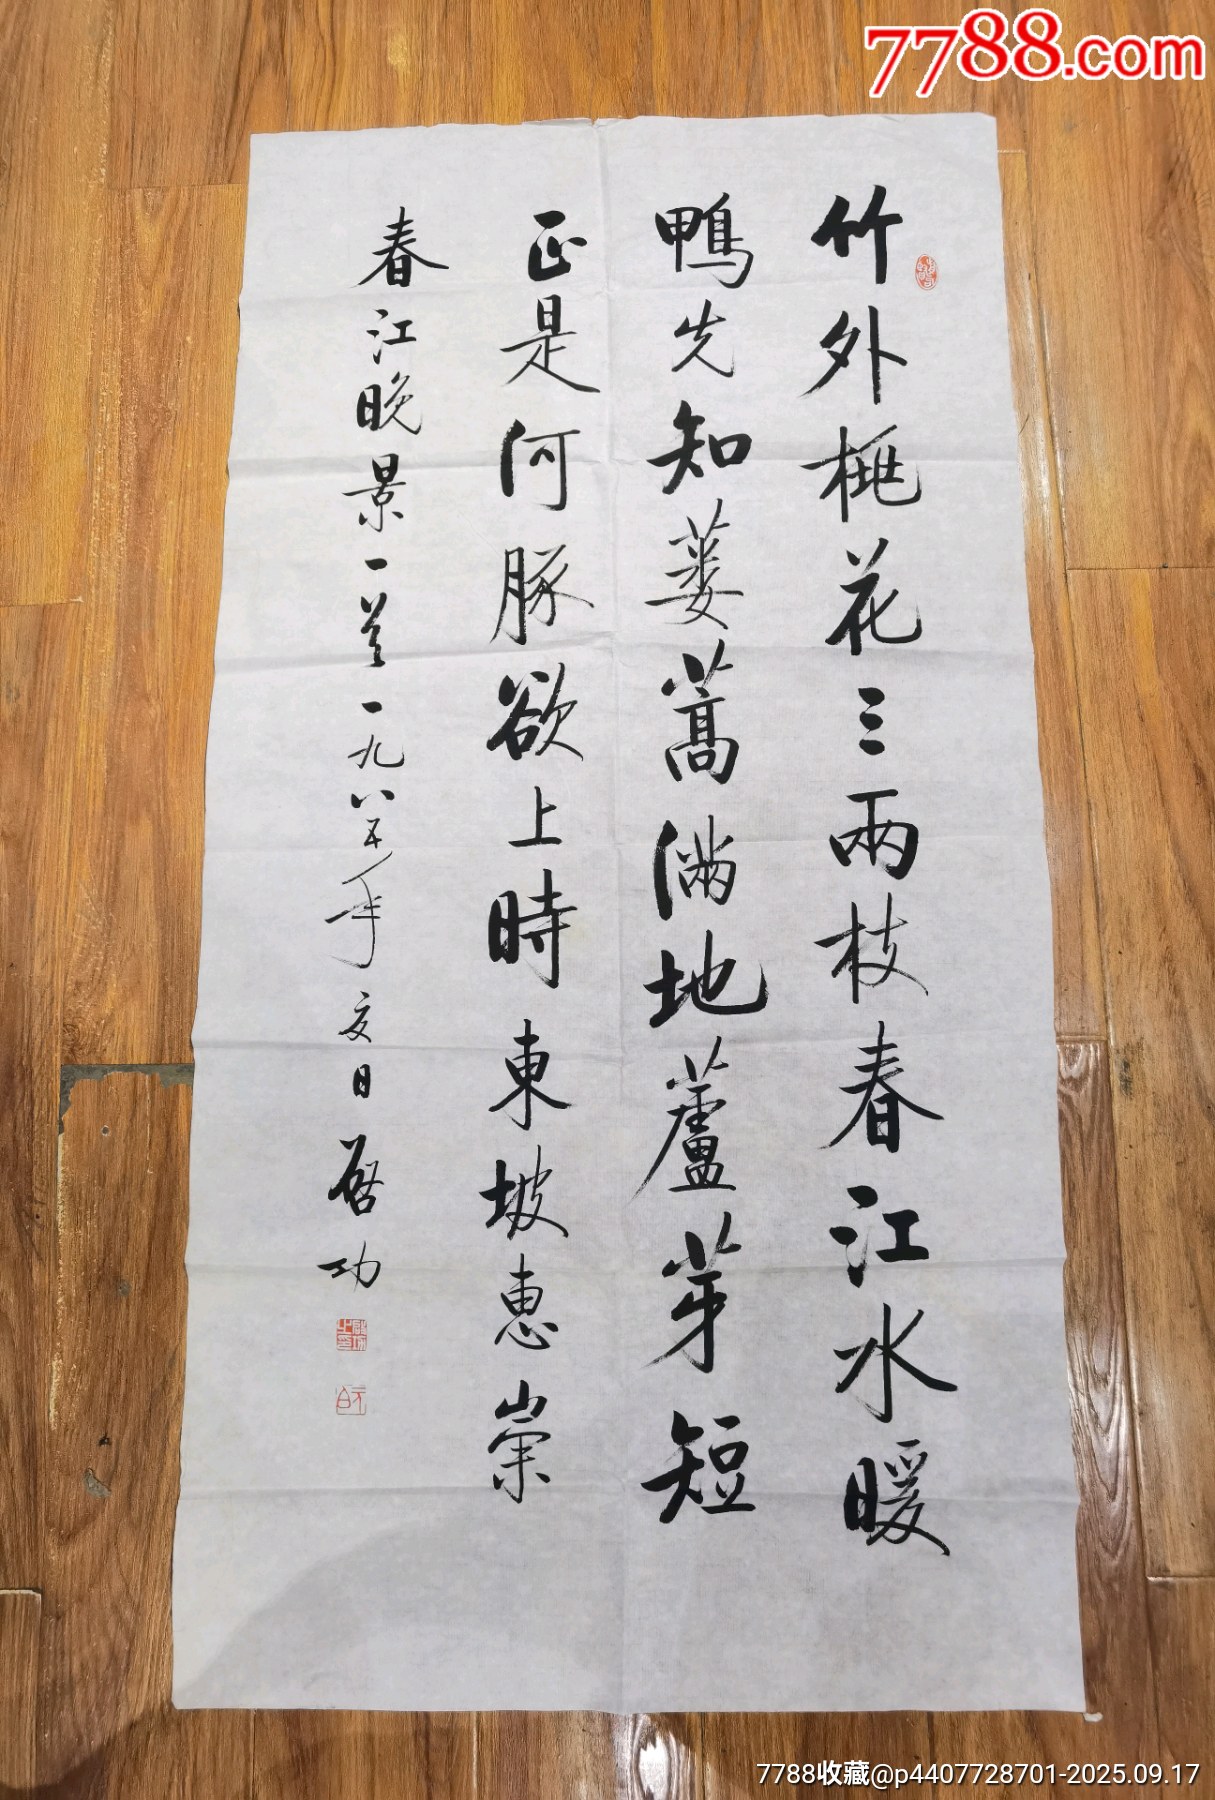 竹外桃花三兩枝春江水暖
鴨先知蒌蒿滿地蘆芽短
正是河豚欲上時東坡惠崇
春江晚景一首一九八五年夏日启功
启功之印
元白
7788.com
7788收藏@p4407728701-2025.09.17